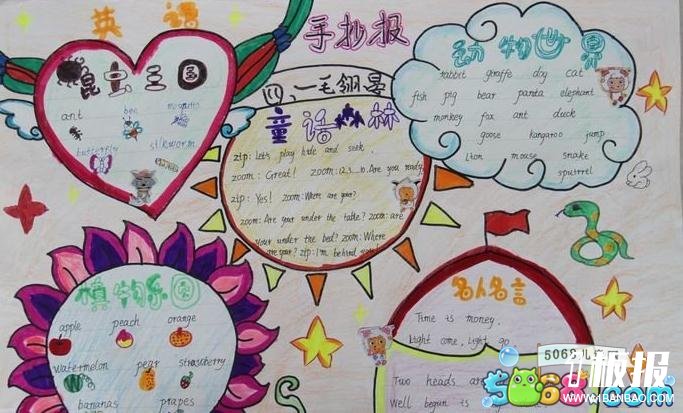 英语
手抄报
昆虫王国
ant bee mosquito
butterfly silkworm
童话森林
zip: Let's play hide and seek.
zoom: Great! zoom: 1.2.3...10. Are you ready
zip: Yes! zoom: Where are your?
zoom: Are your under the table? zoom: are
your under the bed? zoom: Where
are your? zip: I'm behind
动物世界
rabbit giraffe dog cat
fish pig bear panta elephant
monkey fox ant duck
goose kangaroo jump
Lion mouse snake
squirrel
植物乐园
apple peach orange
watermelon pear strawberry
bananas prapes
名人名言
Time is money.
Light come, light go
Two heads are
Well begun is
5068儿
5068.com
板报
WWW.1BANBAO.COM